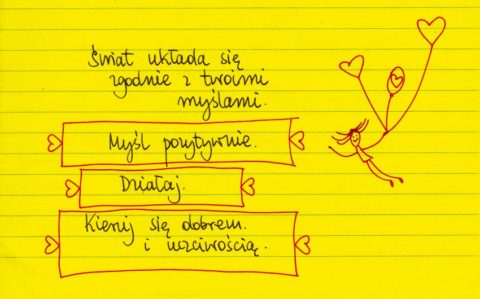 Świat układa się
zgodnie z twoimi
myślami.
Myśl pozytywnie.
Działaj.
Kieruj się dobrem.
i uczciwością.